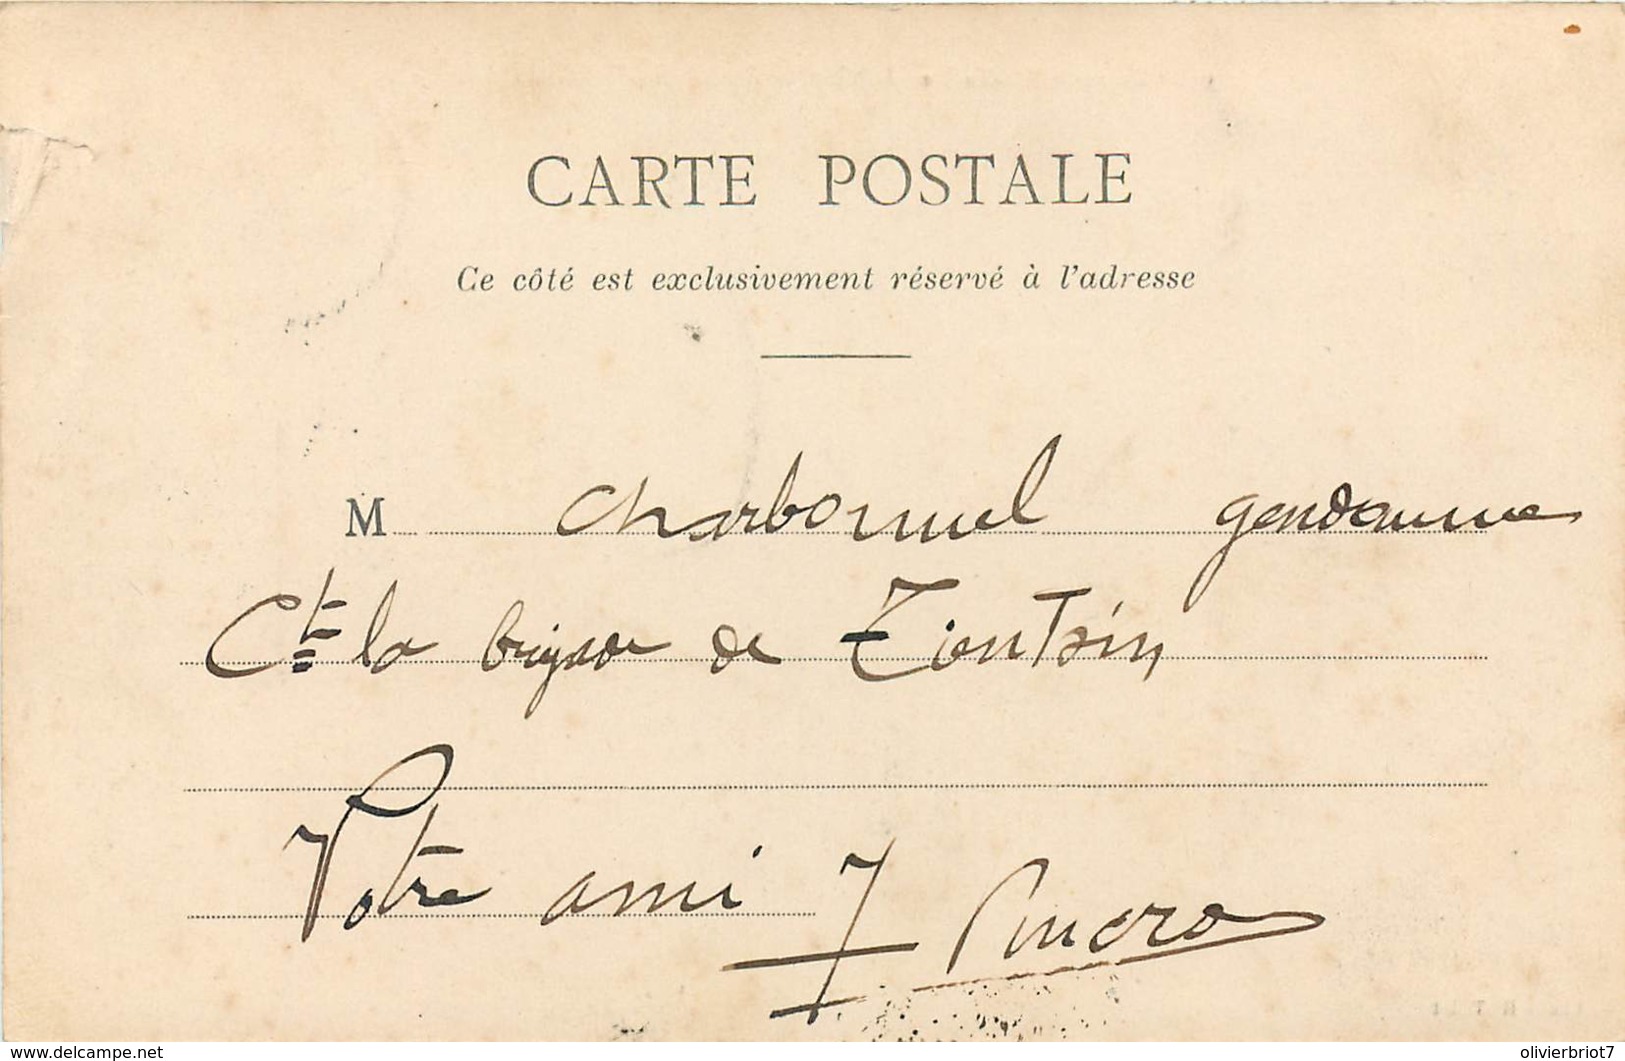 CARTE POSTALE
Ce côté est exclusivement réservé à l'adresse
M Charbonnel gendarme
Ct la brigade de Tientsin
Votre ami J
www.delcampe.net
olivierbriot7